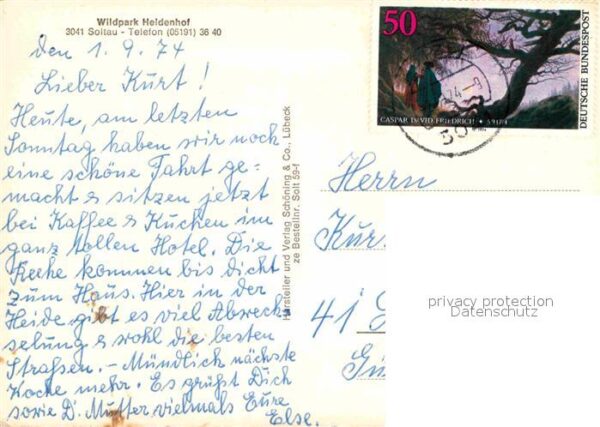 Wildpark Heidenhof
3041 Soltau - Telefon (05191) 36 40
den 1. 9. 74
Lieber Kurt!
Heute, am letzten
Sonntag haben wir noch
eine schöne Fahrt ge-
macht & sitzen jetzt
bei Kaffee & Kuchen im
ganz tollen Hotel. Die
Rehe kommen bis dicht
zum Haus. Hier in der
Heide gibt es viel Abwechs-
selung & wohl die besten
Straßen. - Mündlich nächste
Woche mehr. Es grüßt Dich
sowie D. Mutter vielmals Eure
Else.
Hersteller und Verlag Schöning & Co., Lübeck
ze Bestellnr. Solt 59-f
50
CASPAR DAVID FRIEDRICH • 5.9.1774
DEUTSCHE BUNDESPOST
Herrn
Kur
41
privacy protection
Datenschutz